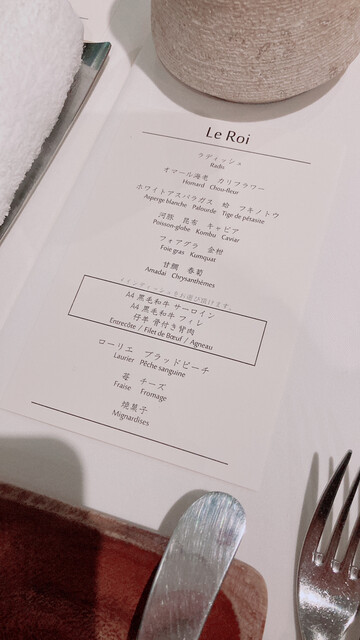 Le Roi
ラディッシュ
Radis
オマール海老 カリフラワー
Homard Chou-fleur
ホワイトアスパラガス 蛤 フキノトウ
Asperge blanche Palourde Tige de pétasite
河豚 昆布 キャビア
Poisson-globe Kombu Caviar
フォアグラ 金柑
Foie gras Kumquat
甘鯛 春菊
Amadai Chrysanthèmes
メインディッシュをお選び頂けます。
A4 黒毛和牛 サーロイン
A4 黒毛和牛 フィレ
仔羊 骨付き背肉
Entrecôte / Filet de Bœuf / Agneau
ローリエ ブラッドピーチ
Laurier Pêche sanguine
苺 チーズ
Fraise Fromage
焼菓子
Mignardises